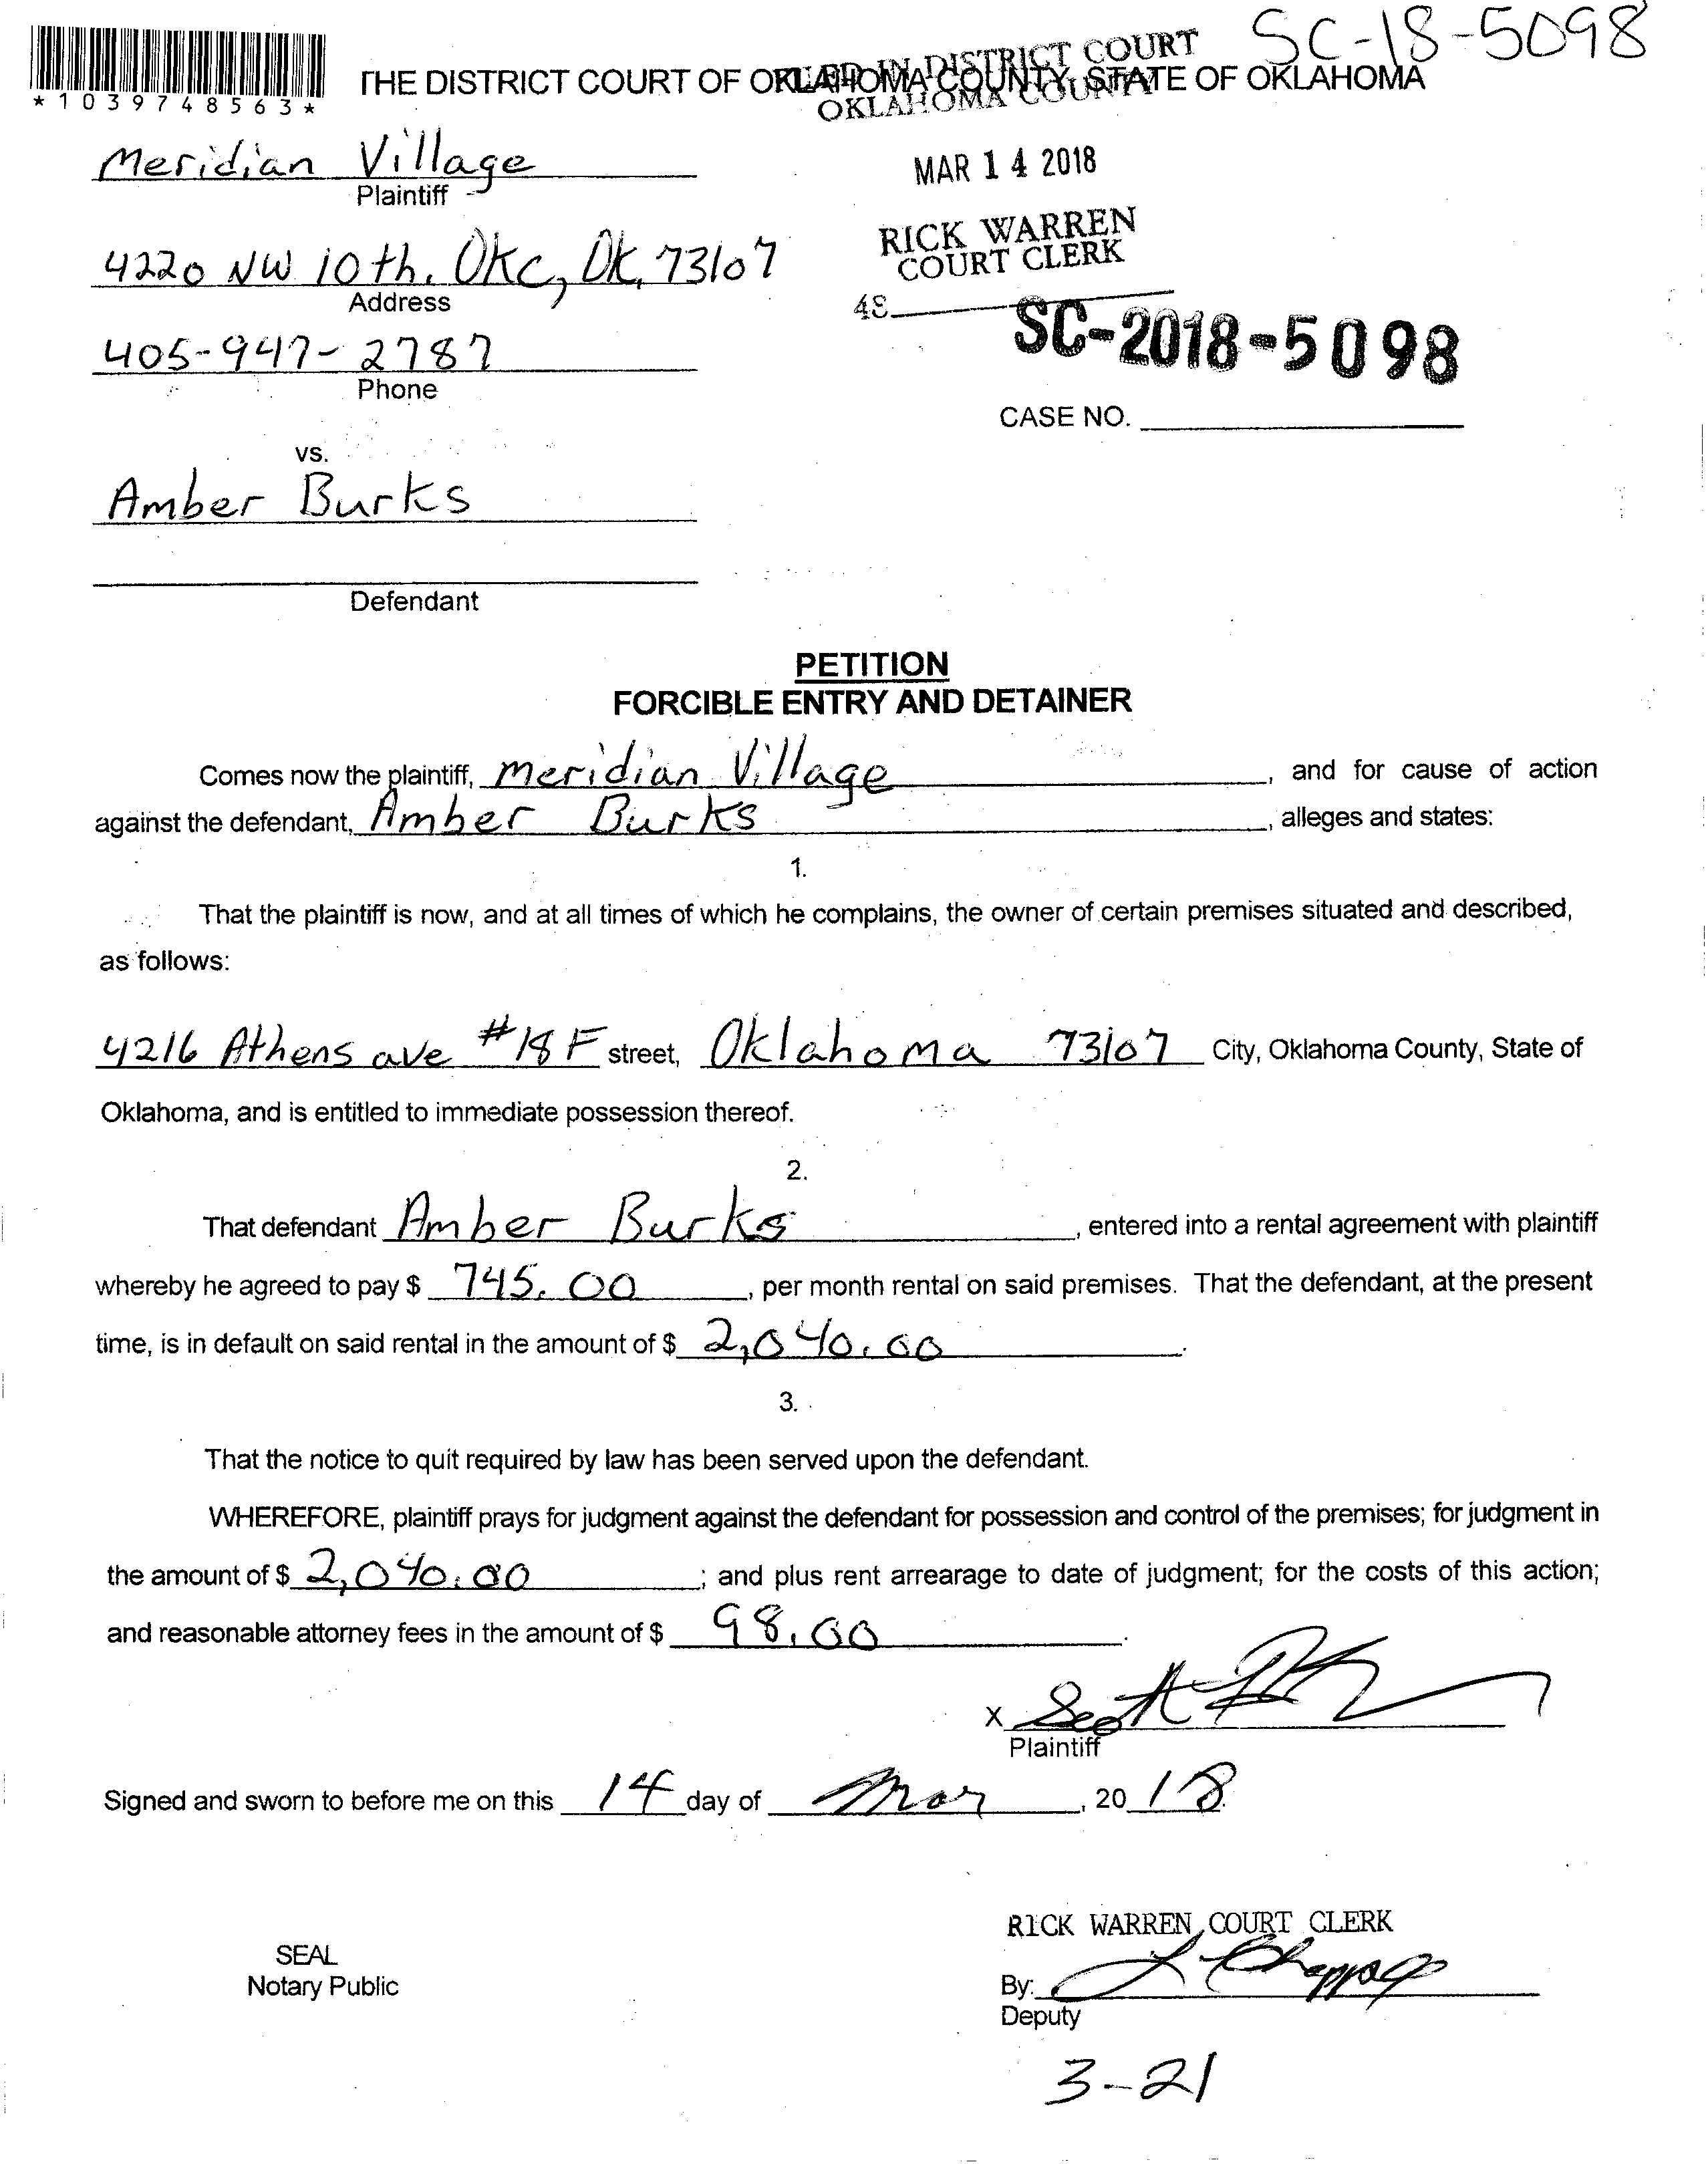 SC-18-5098
*1039748563*
THE DISTRICT COURT OF OKLAHOMA COUNTY, STATE OF OKLAHOMA
FILED IN DISTRICT COURT
OKLAHOMA COUNTY
Meridian Village
Plaintiff
MAR 14 2018
RICK WARREN
COURT CLERK
4220 NW 10th. OKC, OK, 73107
Address
48
SC-2018-5098
405-947-2787
Phone
CASE NO.
vs.
Amber Burks
Defendant
PETITION
FORCIBLE ENTRY AND DETAINER
Comes now the plaintiff, Meridian Village, and for cause of action
against the defendant, Amber Burks, alleges and states:
1.
That the plaintiff is now, and at all times of which he complains, the owner of certain premises situated and described,
as follows:
4216 Athens ave #18F street, Oklahoma 73107 City, Oklahoma County, State of
Oklahoma, and is entitled to immediate possession thereof.
2.
That defendant Amber Burks, entered into a rental agreement with plaintiff
whereby he agreed to pay $ 745.00, per month rental on said premises. That the defendant, at the present
time, is in default on said rental in the amount of $ 2,040.00.
3.
That the notice to quit required by law has been served upon the defendant.
WHEREFORE, plaintiff prays for judgment against the defendant for possession and control of the premises; for judgment in
the amount of $ 2,040.00; and plus rent arrearage to date of judgment; for the costs of this action;
and reasonable attorney fees in the amount of $ 98.00.
X Scott
Plaintiff
Signed and sworn to before me on this 14 day of Mar, 20 18.
RICK WARREN, COURT CLERK
SEAL
Notary Public
By:
Deputy
3-21